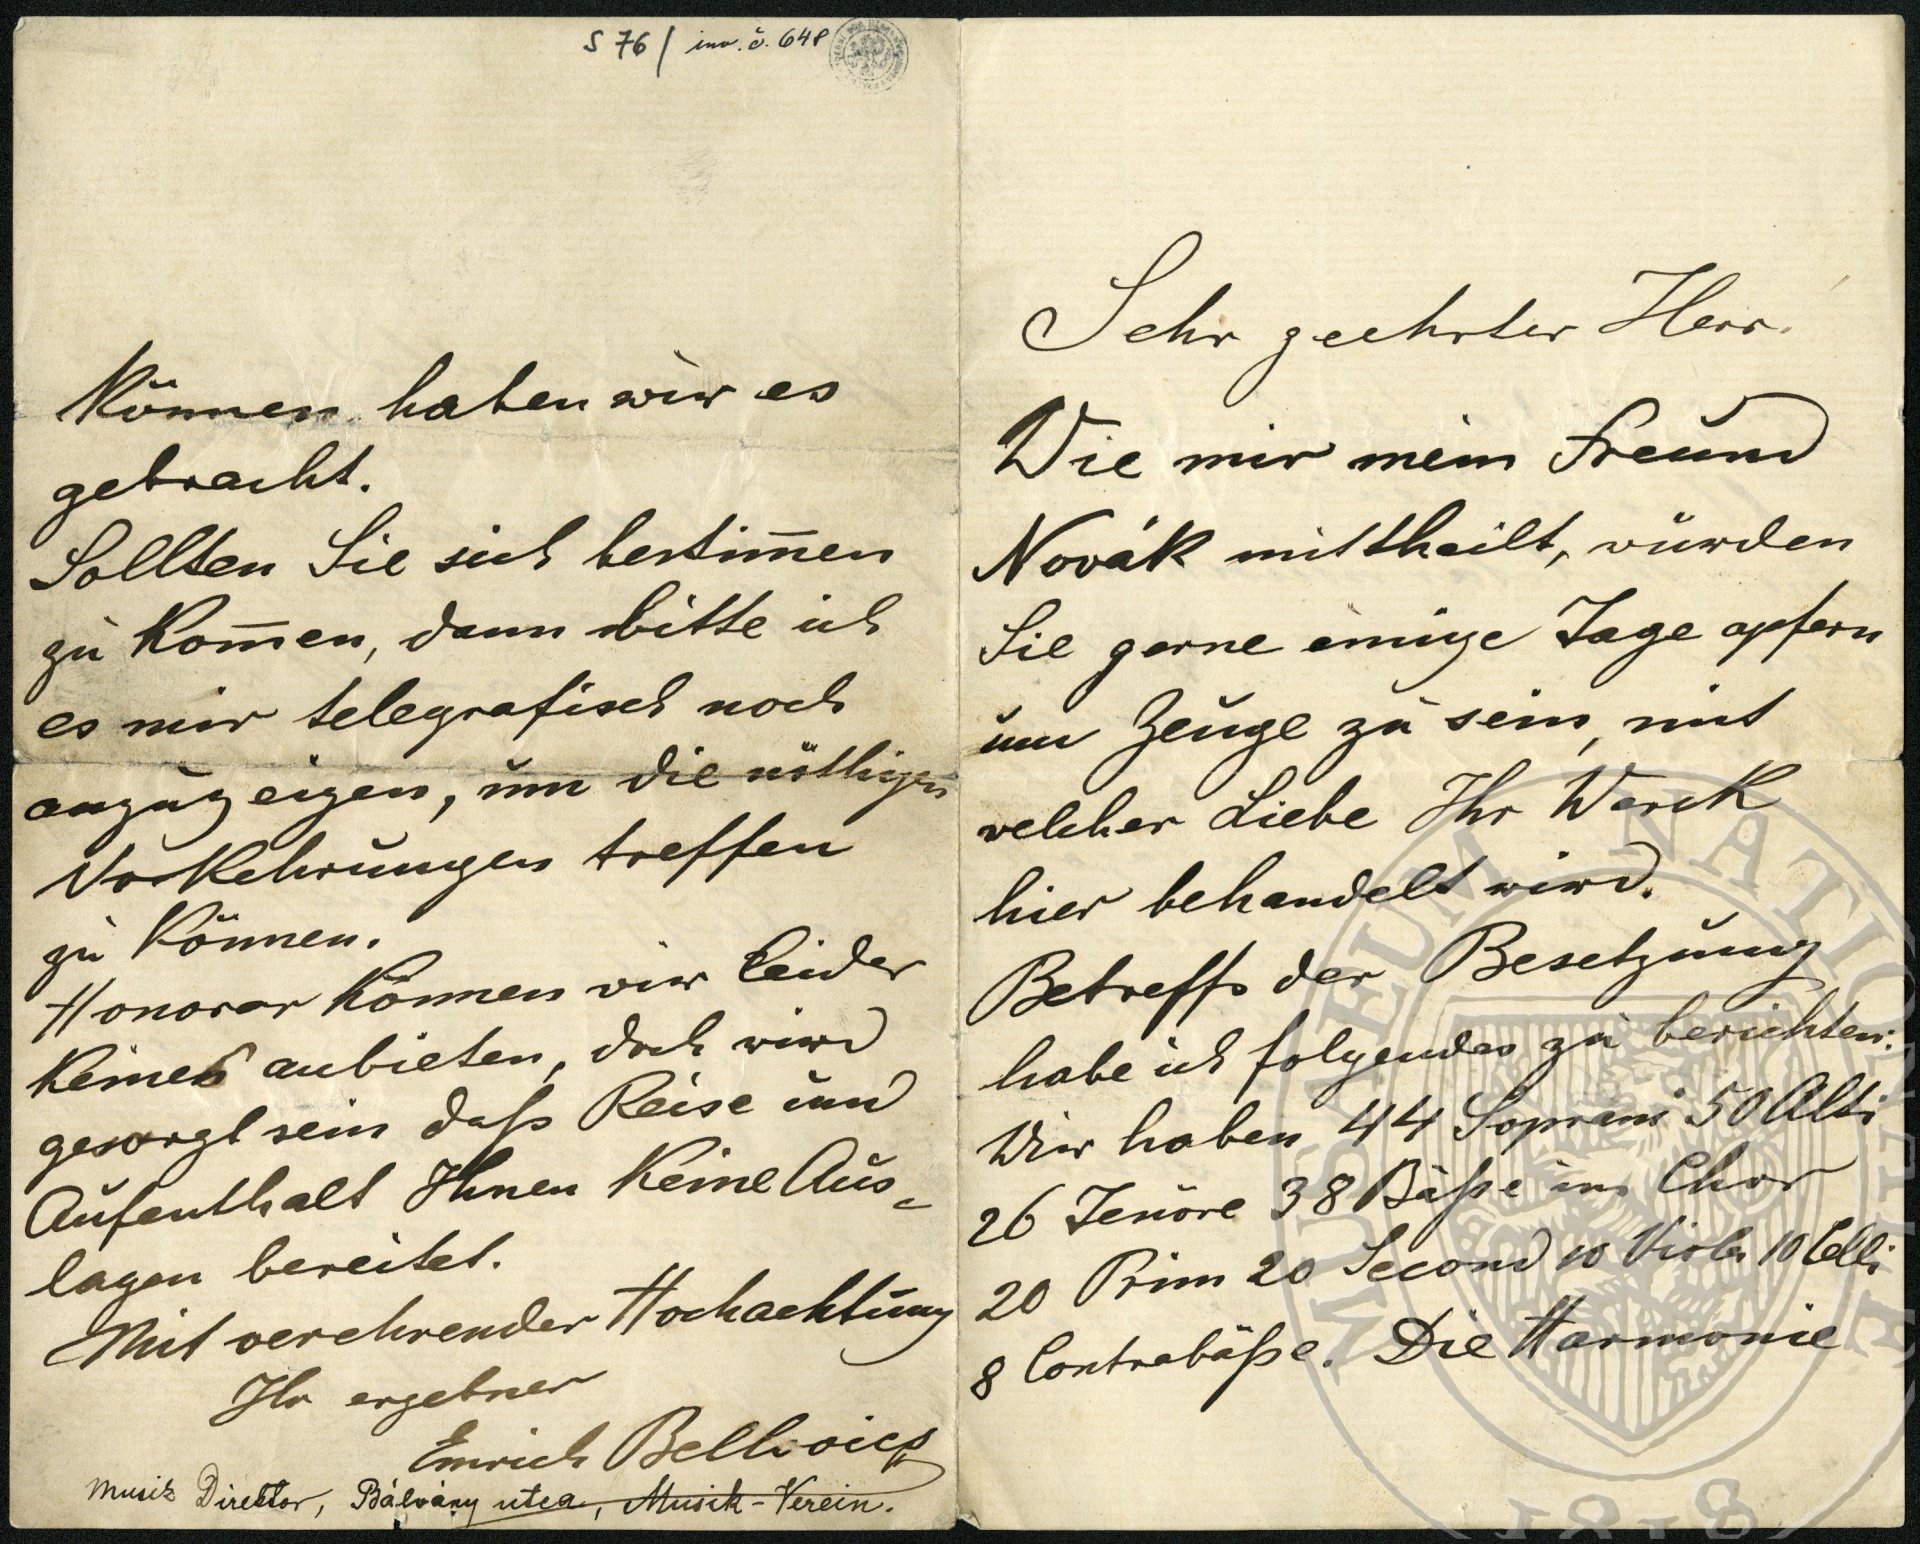 S 76 / inv. č. 648
Sehr geehrter Herr.
Wie mir mein Freund
Novák mittheilt, würden
Sie gerne einige Tage opfern
um Zeuge zu sein, mit
welcher Liebe Ihr Werck
hier behandelt wird.
Betreffs der Besetzung
habe ich folgendes zu berichten:
Wir haben 44 Soprani 50 Alti
26 Tenöre 38 Bäße im Chor
20 Prim 20 Second 10 Violen 10 Celli
8 Contrabäße. Die Harmonie
Können haben wir es
gebracht.
Sollten Sie sich bestim̄en
zu Kom̄en, dann bitte ich
es mir telegrafisch noch
anzuzeigen, um die nöthigen
Vorkehrungen treffen
zu Können.
Honorar Können wir leider
Keines anbieten, doch wird
gesorgt sein daß Reise und
Aufenthalt Ihnen Keine Aus-
lagen bereitet.
Mit verehrender Hochachtung
Ihr ergebner
Emrich Bellovicz
Musik Direktor, Bálvány utca, Musik-Verein.
MUSAEUM NATIONALE
1818